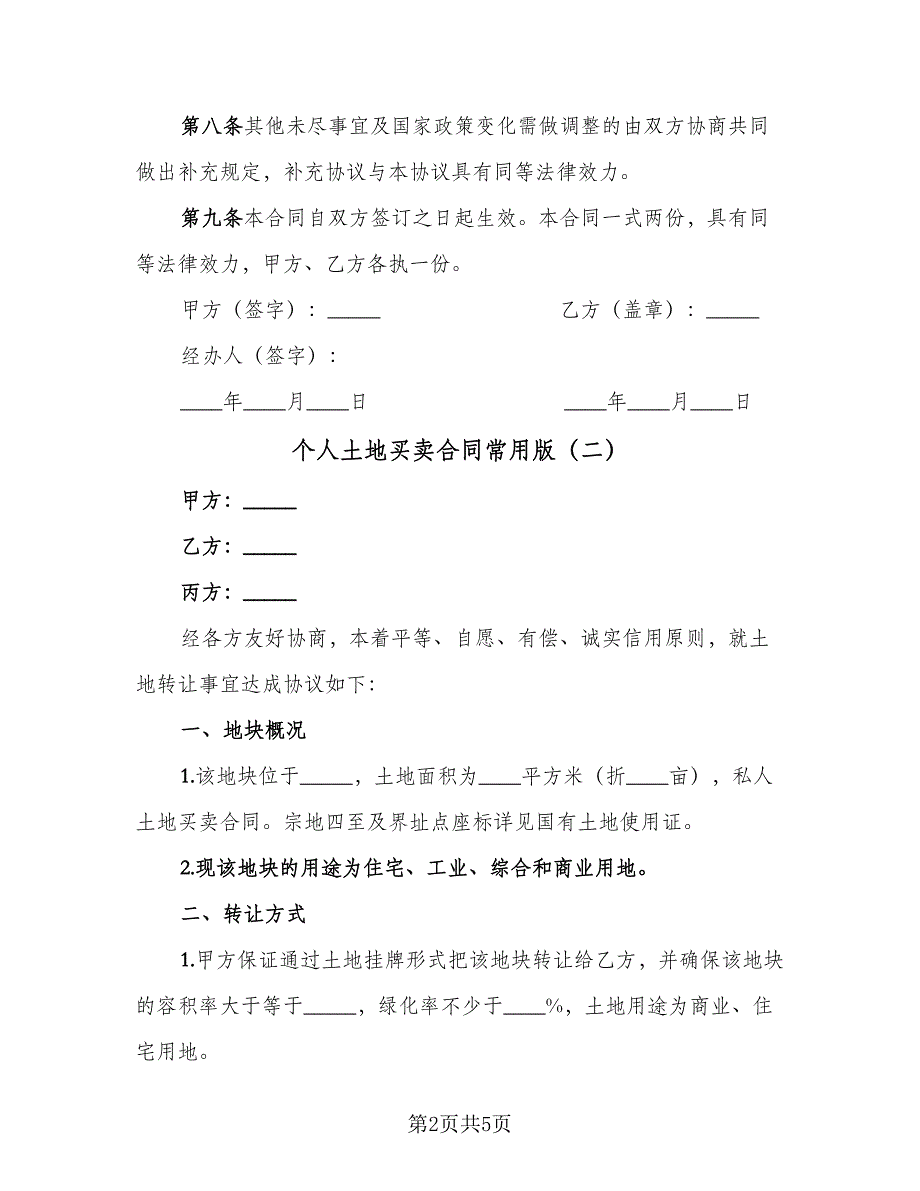 第八条其他未尽事宜及国家政策变化需做调整的由双方协商共同
做出补充规定，补充协议与本协议具有同等法律效力。
第九条本合同自双方签订之日起生效。本合同一式两份，具有同
等法律效力，甲方、乙方各执一份。
甲方（签字）：_____ 乙方（盖章）：_____
经办人（签字）：
____年____月____日 ____年____月____日
个人土地买卖合同常用版（二）
甲方：_____
乙方：_____
丙方：_____
经各方友好协商，本着平等、自愿、有偿、诚实信用原则，就土
地转让事宜达成协议如下：
一、地块概况
1.该地块位于_____，土地面积为____平方米（折____亩），私人
土地买卖合同。宗地四至及界址点座标详见国有土地使用证。
2.现该地块的用途为住宅、工业、综合和商业用地。
二、转让方式
1.甲方保证通过土地挂牌形式把该地块转让给乙方，并确保该地块
的容积率大于等于_____，绿化率不少于____%，土地用途为商业、住
宅用地。
第2页共5页